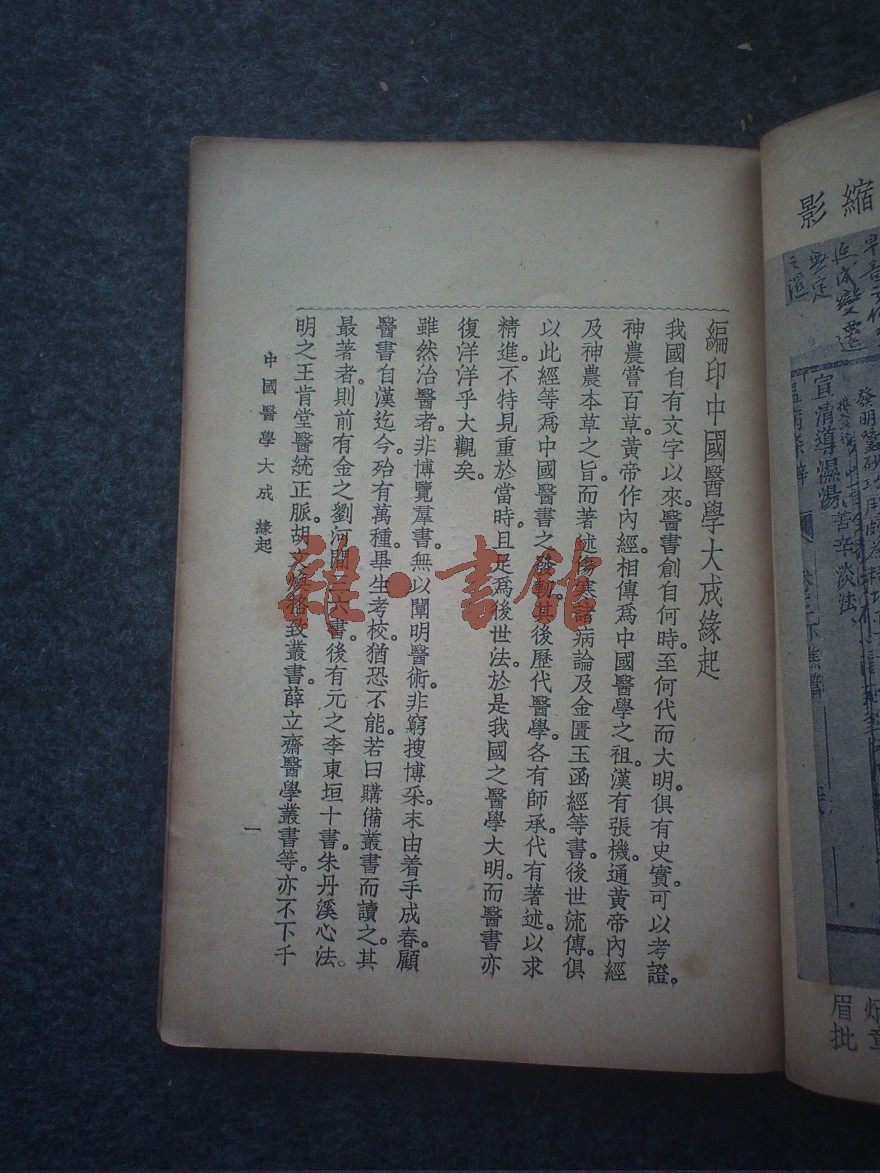 編印中國醫學大成緣起
我國自有文字以來。醫書創自何時。至何代而大明。俱有史實。可以考證。
神農嘗百草。黃帝作內經。相傳爲中國醫學之祖。漢有張機。通黃帝內經
及神農本草之旨。而著述傷寒諸病論及金匱玉函經等書。後世流傳。俱
以此經等爲中國醫書之發動。其後歷代醫學。各有師承。代有著述。以求
精進。不特見重於當時。且足爲後世法。於是我國之醫學大明。而醫書亦
復洋洋乎大觀矣。
雖然。治醫者。非博覽羣書。無以闡明醫術。非窮搜博采。末由着手成春。顧
醫書自漢迄今。殆有萬種。畢生考校。猶恐不能。若曰購備叢書而讀之。其
最著者。則前有金之劉河間三六書。後有元之李東垣十書。朱丹溪心法。
明之王肯堂醫統正脈。胡文煥格致叢書。薛立齋醫學叢書等。亦不下千
中國醫學大成 緣起
一
雜·書館
縮影
宜清導濕湯
苦辛淡法
眉批